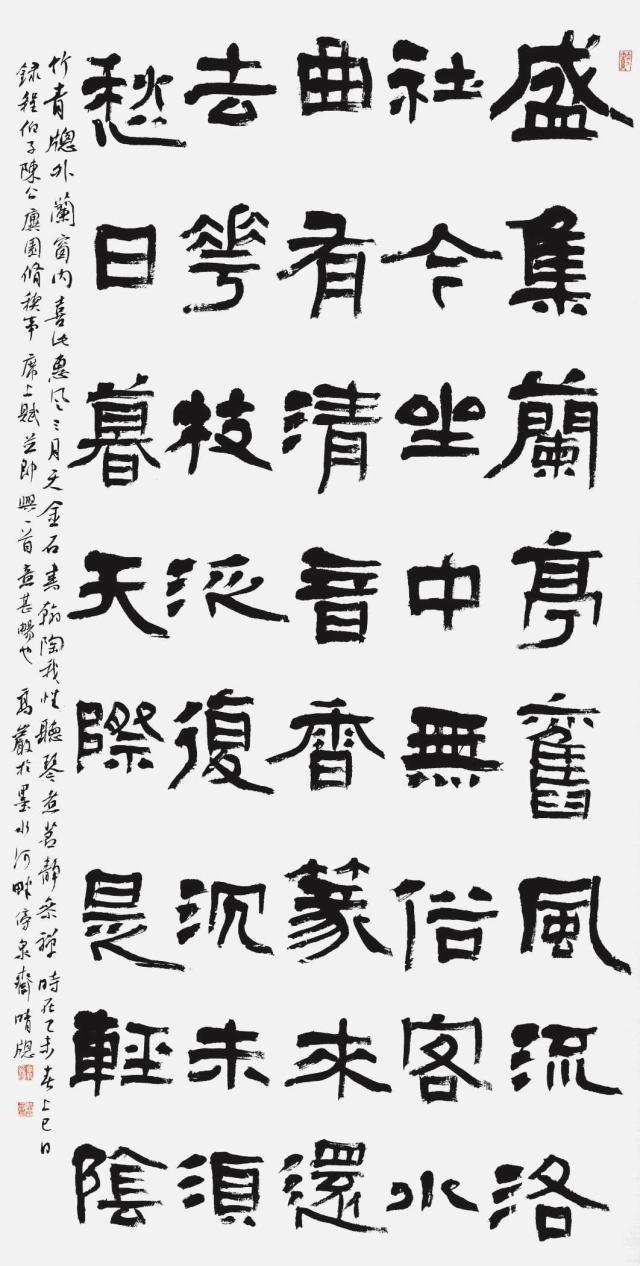 盛集蘭亭舊風流洛
社今坐中無俗客水
曲有清音香篆來還
去華枝泛復沉未須
愁日暮天際是輕陰
竹青牕外蘭窗內喜沐惠風三月天金石書翰陶我性聽琴煮茗靜參禪時在丁未春上巳日
錄程伯子陳公廙園脩禊事席上賦並即興一首意甚暢也高巖於墨水河畔停泉齋晴牕